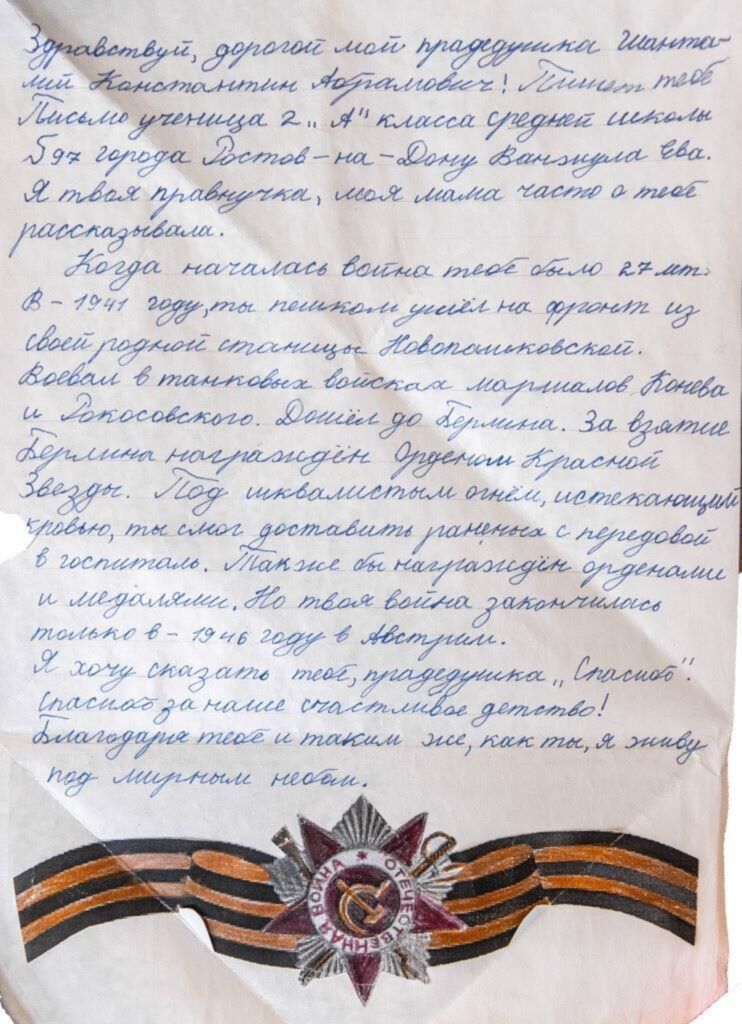 Здравствуй, дорогой мой прадедушка Шанта-
лий Константин Абрамович! Пишет тебе
Письмо ученица 2 „А" класса средней школы
№97 города Ростов-на-Дону Ванжула Ева.
Я твоя правнучка, моя мама часто о тебе
рассказывала.
Когда началась война тебе было 27 лет.
В - 1941 году, ты пешком ушёл на фронт из
своей родной станицы Новопашковской.
Воевал в танковых войсках маршалов Конева
и Рокосовского. Дошёл до Берлина. За взятие
Берлина награждён Орденом Красной
Звезды. Под шквалистым огнём, истекающий
кровью, ты смог доставить раненых с передовой
в госпиталь. Также бы награждён орденами
и медалями. Но твоя война закончилась
только в - 1946 году в Австрии.
Я хочу сказать тебе, прадедушка „Спасибо".
Спасибо за наше счастливое детство!
Благодаря тебе и таким же, как ты, я живу
под мирным небом.
ОТЕЧЕСТВЕННАЯ ВОЙНА